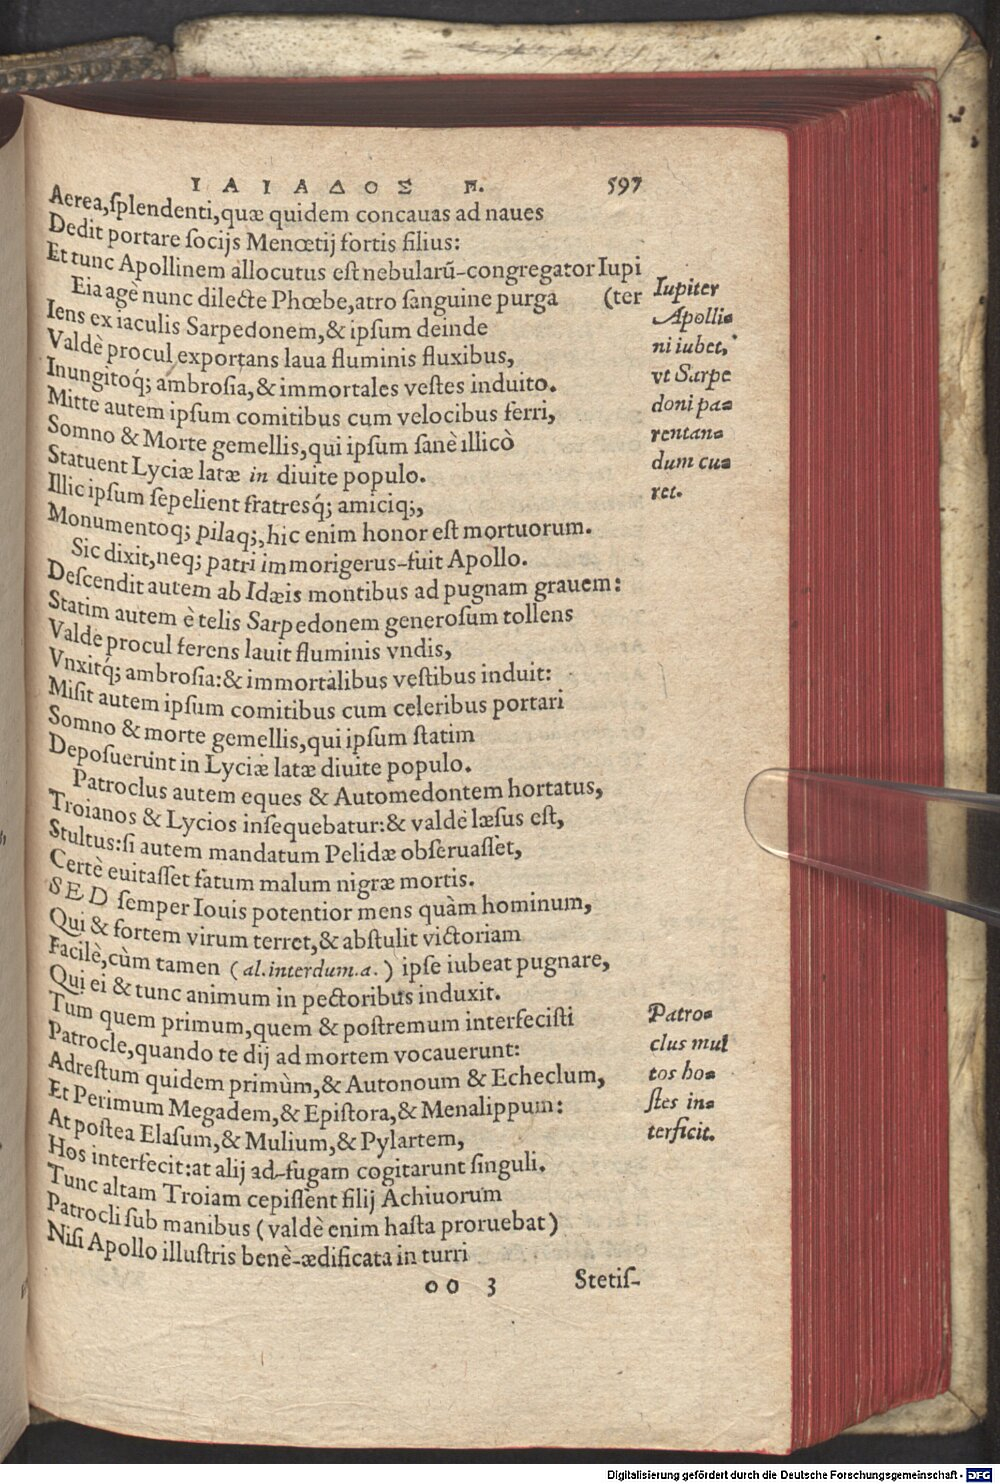 ΙΛΙΑΔΟΣ Π. 597
Aerea,ſplendenti,quæ quidem concauas ad naues
Dedit portare ſocijs Menœtij fortis filius:
Et tunc Apollinem allocutus eſt nebularũ-congregator Iupi
Eia agè nunc dilecte Phœbe,atro ſanguine purga (ter
Iens ex iaculis Sarpedonem,& ipſum deinde
Valdè procul exportans laua fluminis fluxibus,
Inungitoq́; ambroſia,& immortales veſtes induito.
Mitte autem ipſum comitibus cum velocibus ferri,
Somno & Morte gemellis,qui ipſum ſanè illicò
Statuent Lyciæ latæ in diuite populo.
Illic ipſum ſepelient fratresq́; amiciq;,
Monumentoq; pilaq;,hic enim honor eſt mortuorum.
Sic dixit,neq; patri immorigerus-fuit Apollo.
Deſcendit autem ab Idæis montibus ad pugnam grauem:
Statim autem è telis Sarpedonem generoſum tollens
Valde procul ferens lauit fluminis vndis,
Vnxitq́; ambroſia:& immortalibus veſtibus induit:
Miſit autem ipſum comitibus cum celeribus portari
Somno & morte gemellis,qui ipſum ſtatim
Depoſuerunt in Lyciæ latæ diuite populo.
Patroclus autem eques & Automedontem hortatus,
Troianos & Lycios inſequebatur:& valdè læſus eſt,
Stultus:ſi autem mandatum Pelidæ obſeruaſſet,
Certè euitaſſet fatum malum nigræ mortis.
SED ſemper Iouis potentior mens quàm hominum,
Qui & fortem virum terret,& abſtulit victoriam
Facilè,cùm tamen (al.interdum.a.) ipſe iubeat pugnare,
Qui ei & tunc animum in pectoribus induxit.
Tum quem primum,quem & poſtremum interfeciſti
Patrocle,quando te dij ad mortem vocauerunt:
Adreſtum quidem primùm,& Autonoum & Echeclum,
Et Perimum Megadem,& Epiſtora,& Menalippum:
At poſtea Elaſum,& Mulium,& Pylartem,
Hos interfecit:at alij ad-fugam cogitarunt ſinguli.
Tunc altam Troiam cepiſſent filij Achiuorum
Patrocli ſub manibus (valdè enim haſta proruebat)
Niſi Apollo illuſtris benè-ædificata in turri
oo 3 Stetiſ-
Iupiter
Apolli=
ni iubet,
vt Sarpe
doni pa=
rentan=
dum cu=
ret.
Patro=
clus mul
tos ho=
ſtes in=
terficit.
Digitalisierung gefördert durch die Deutsche Forschungsgemeinschaft - DFG